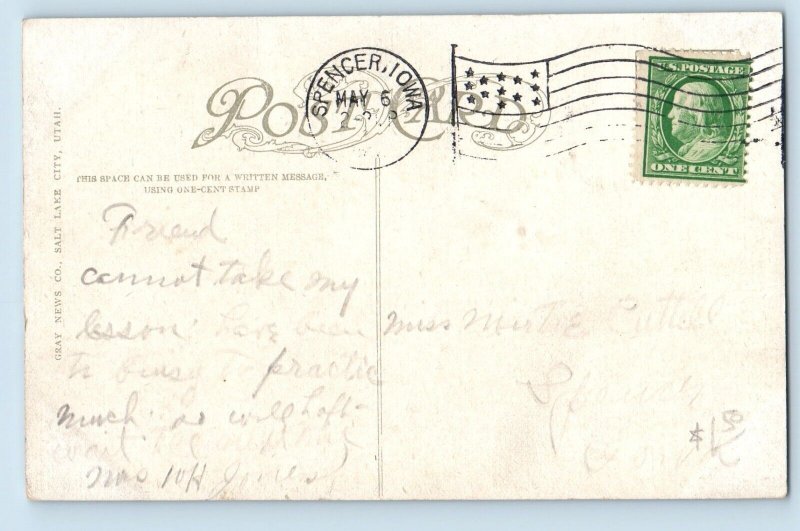 POST CARD
SPENCER, IOWA
MAY 6
U.S. POSTAGE
ONE CENT
THIS SPACE CAN BE USED FOR A WRITTEN MESSAGE,
USING ONE-CENT STAMP
GRAY NEWS CO., SALT LAKE CITY, UTAH.
Friend
cannot take my
lesson have been
to busy to practic
much so will haft
wait
Mrs Jones
Miss Mirtle
Spencer
Iowa